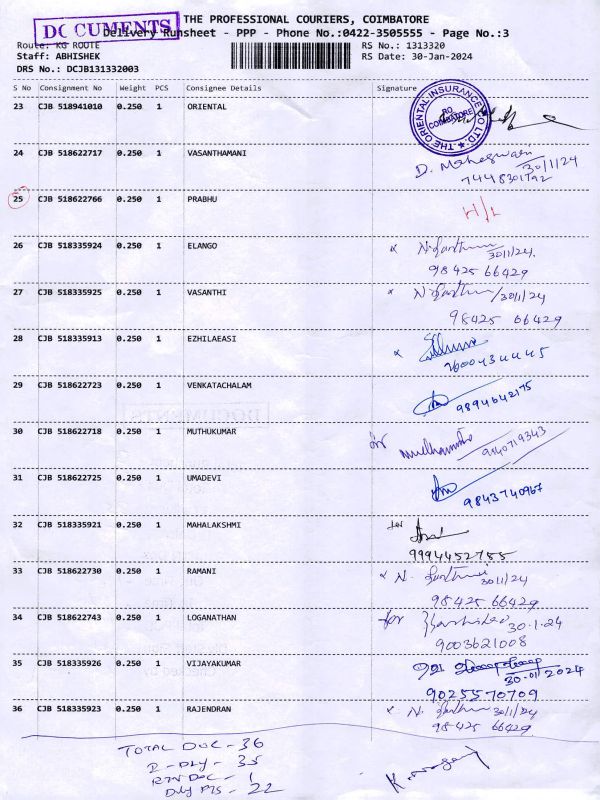 DOCUMENTS
THE PROFESSIONAL COURIERS, COIMBATORE
Delivery Runsheet - PPP - Phone No.:0422-3505555 - Page No.:3
Route: KG ROUTE
RS No.: 1313320
Staff: ABHISHEK
RS Date: 30-Jan-2024
DRS No.: DCJB131332003
S No Consignment No Weight PCS Consignee Details Signature
23 CJB 518941010 0.250 1 ORIENTAL
THE ORIENTAL INSURANCE CO. LTD. RO COIMBATORE
24 CJB 518622717 0.250 1 VASANTHAMANI
D. Maheswari 30/1/24
7448301792
25 CJB 518622766 0.250 1 PRABHU
H/L
26 CJB 518335924 0.250 1 ELANGO
30/1/24.
98425 66429
27 CJB 518335925 0.250 1 VASANTHI
30/1/24
98425 66429
28 CJB 518335913 0.250 1 EZHILAEASI
29 CJB 518622723 0.250 1 VENKATACHALAM
9894642175
30 CJB 518622718 0.250 1 MUTHUKUMAR
for
9840719343
31 CJB 518622725 0.250 1 UMADEVI
9843740967
32 CJB 518335921 0.250 1 MAHALAKSHMI
for
9994452755
33 CJB 518622730 0.250 1 RAMANI
30/1/24
98425 66429
34 CJB 518622743 0.250 1 LOGANATHAN
for 30-1-24
9003621008
35 CJB 518335926 0.250 1 VIJAYAKUMAR
30-01-2024
9025570709
36 CJB 518335923 0.250 1 RAJENDRAN
30/1/24
98425 66429
TOTAL DOC - 36
35
1
22